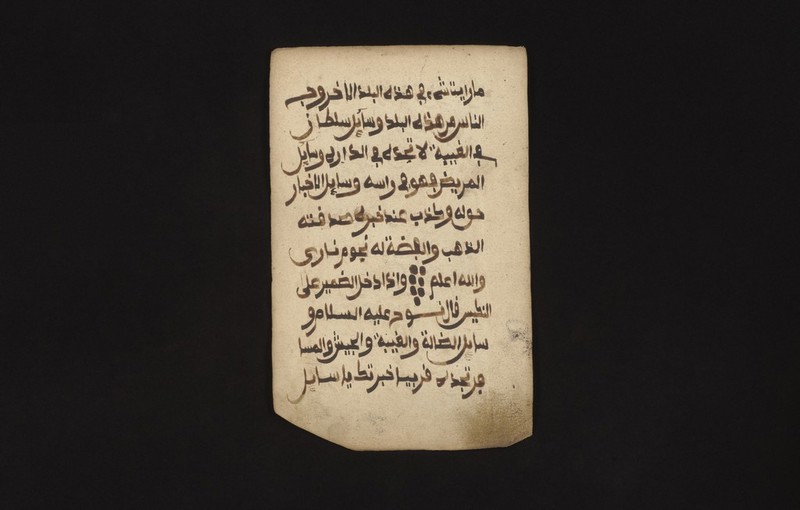 ما رايت شيء في هذه البلد الا خروج
الناس من هذه البلد وسايل سلطان
في الغيبة لا تجده في الدار وسايل
المريض فهو في راسه وسايل الاخبار
عند خبر صدقته
الذهب والفضة له نجوم نارى
والله اعلم واذا دخل الضمير على
قال هود عليه السلام و
سايل الضالة والغيبة والجيش والمسا
فر تجد قريبا خبر يا سايل